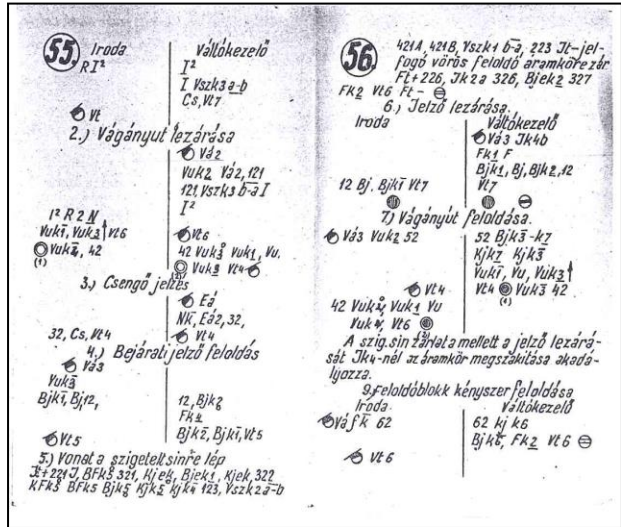 55. Iroda Váltókezelő
RI² I²
I Vszk3 a-b
Cs, Vt7
Vt
2.) Vágányút lezárása
Vá2
Vuk2 Vá2, 121
121, Vszk3 b-a I
I² R2N I²
Vuk1, Vuk3 Vt6 Vt6
Vuk4, 42 42 Vuk3 Vuk1, Vu.
(1) Vuk3 Vt4
3.) Csengő jelzés
Eá
Nk, Eá2, 32,
32, Cs, Vt4 Vt4
4.) Bejárati jelző feloldás
Vá3
Vuk3
Bjk1, Bj12, 12, Bjk2
Fk4
Vt5 Bjk2, Bjk1, Vt5
5.) Vonat a szigetelt sinre lép
Jt+221J, BFk5 321, Kjek, Bjek1, Kjek, 322
KFk5 BFk5 Bjk5 Kjk5 Kjk4 123, Vszk2a-b
56. 421A, 421B, Vszk1 b-a, 223 Jt-jel-
fogó vörös feloldó áramköre zár
Ft+226, Jk2a 326, Bjek2 327
Fk2 Vt6 Ft-
6.) Jelző lezárása.
Iroda Váltókezelő
Vá3 Jk4b
Fk1 F
Bjk1, Bj, Bjk2, 12
12 Bj. Bjk1 Vt7 Vt7
7.) Vágányút feloldása.
Vá3 Vuk2 52 52 Bjk3-k7
Kjk7 Kjk3
Vuk1, Vu, Vuk3
Vt4 Vt4 Vuk3 42
42 Vuk2, Vuk1 Vu (1)
Vuk4, Vt6
A szig.sin zárlata mellett a jelző lezárá-
sát Jk4-nél az áramkör megszakitása akadá-
lyozza.
9. Feloldóblokk kényszer feloldása
Iroda Váltókezelő
Váfk 62 62 kj k6
Bjk5, Fk2 Vt6
Vt6